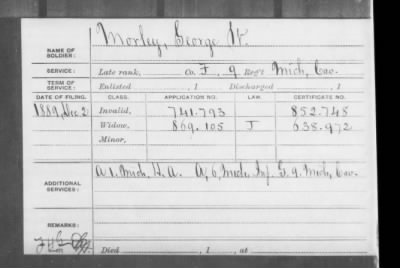 NAME OF SOLDIER: Morley, George W.
SERVICE: Late rank, Co. F, 9 Reg't Mich. Cav.
TERM OF SERVICE: Enlisted , 1 Discharged , 1
DATE OF FILING. CLASS. APPLICATION NO. LAW. CERTIFICATE NO.
1889, Dec. 2 Invalid, 741.793 852.748
Widow, 869.105 J 638.972
Minor,
ADDITIONAL SERVICES: A 1, Mich. H.A. A, 6, Mich. Inf. G. 9 Mich. Cav.
REMARKS:
Died , 1 , at